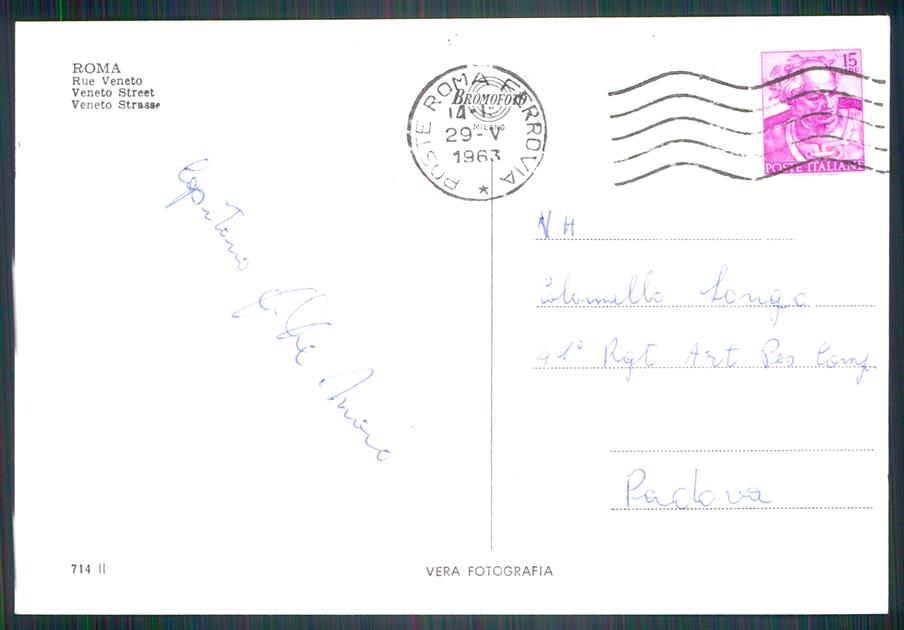 ROMA
Rue Veneto
Veneto Street
Veneto Strasse
POSTE ROMA FERROVIA *
BROMOFOTO
MILANO
14-
29-V
1963
15
LIRE
POSTE ITALIANE
Capitano
Mario
N H
Colonnello Longo
41° Rgt Art Pes Camp
Padova
714 II
VERA FOTOGRAFIA